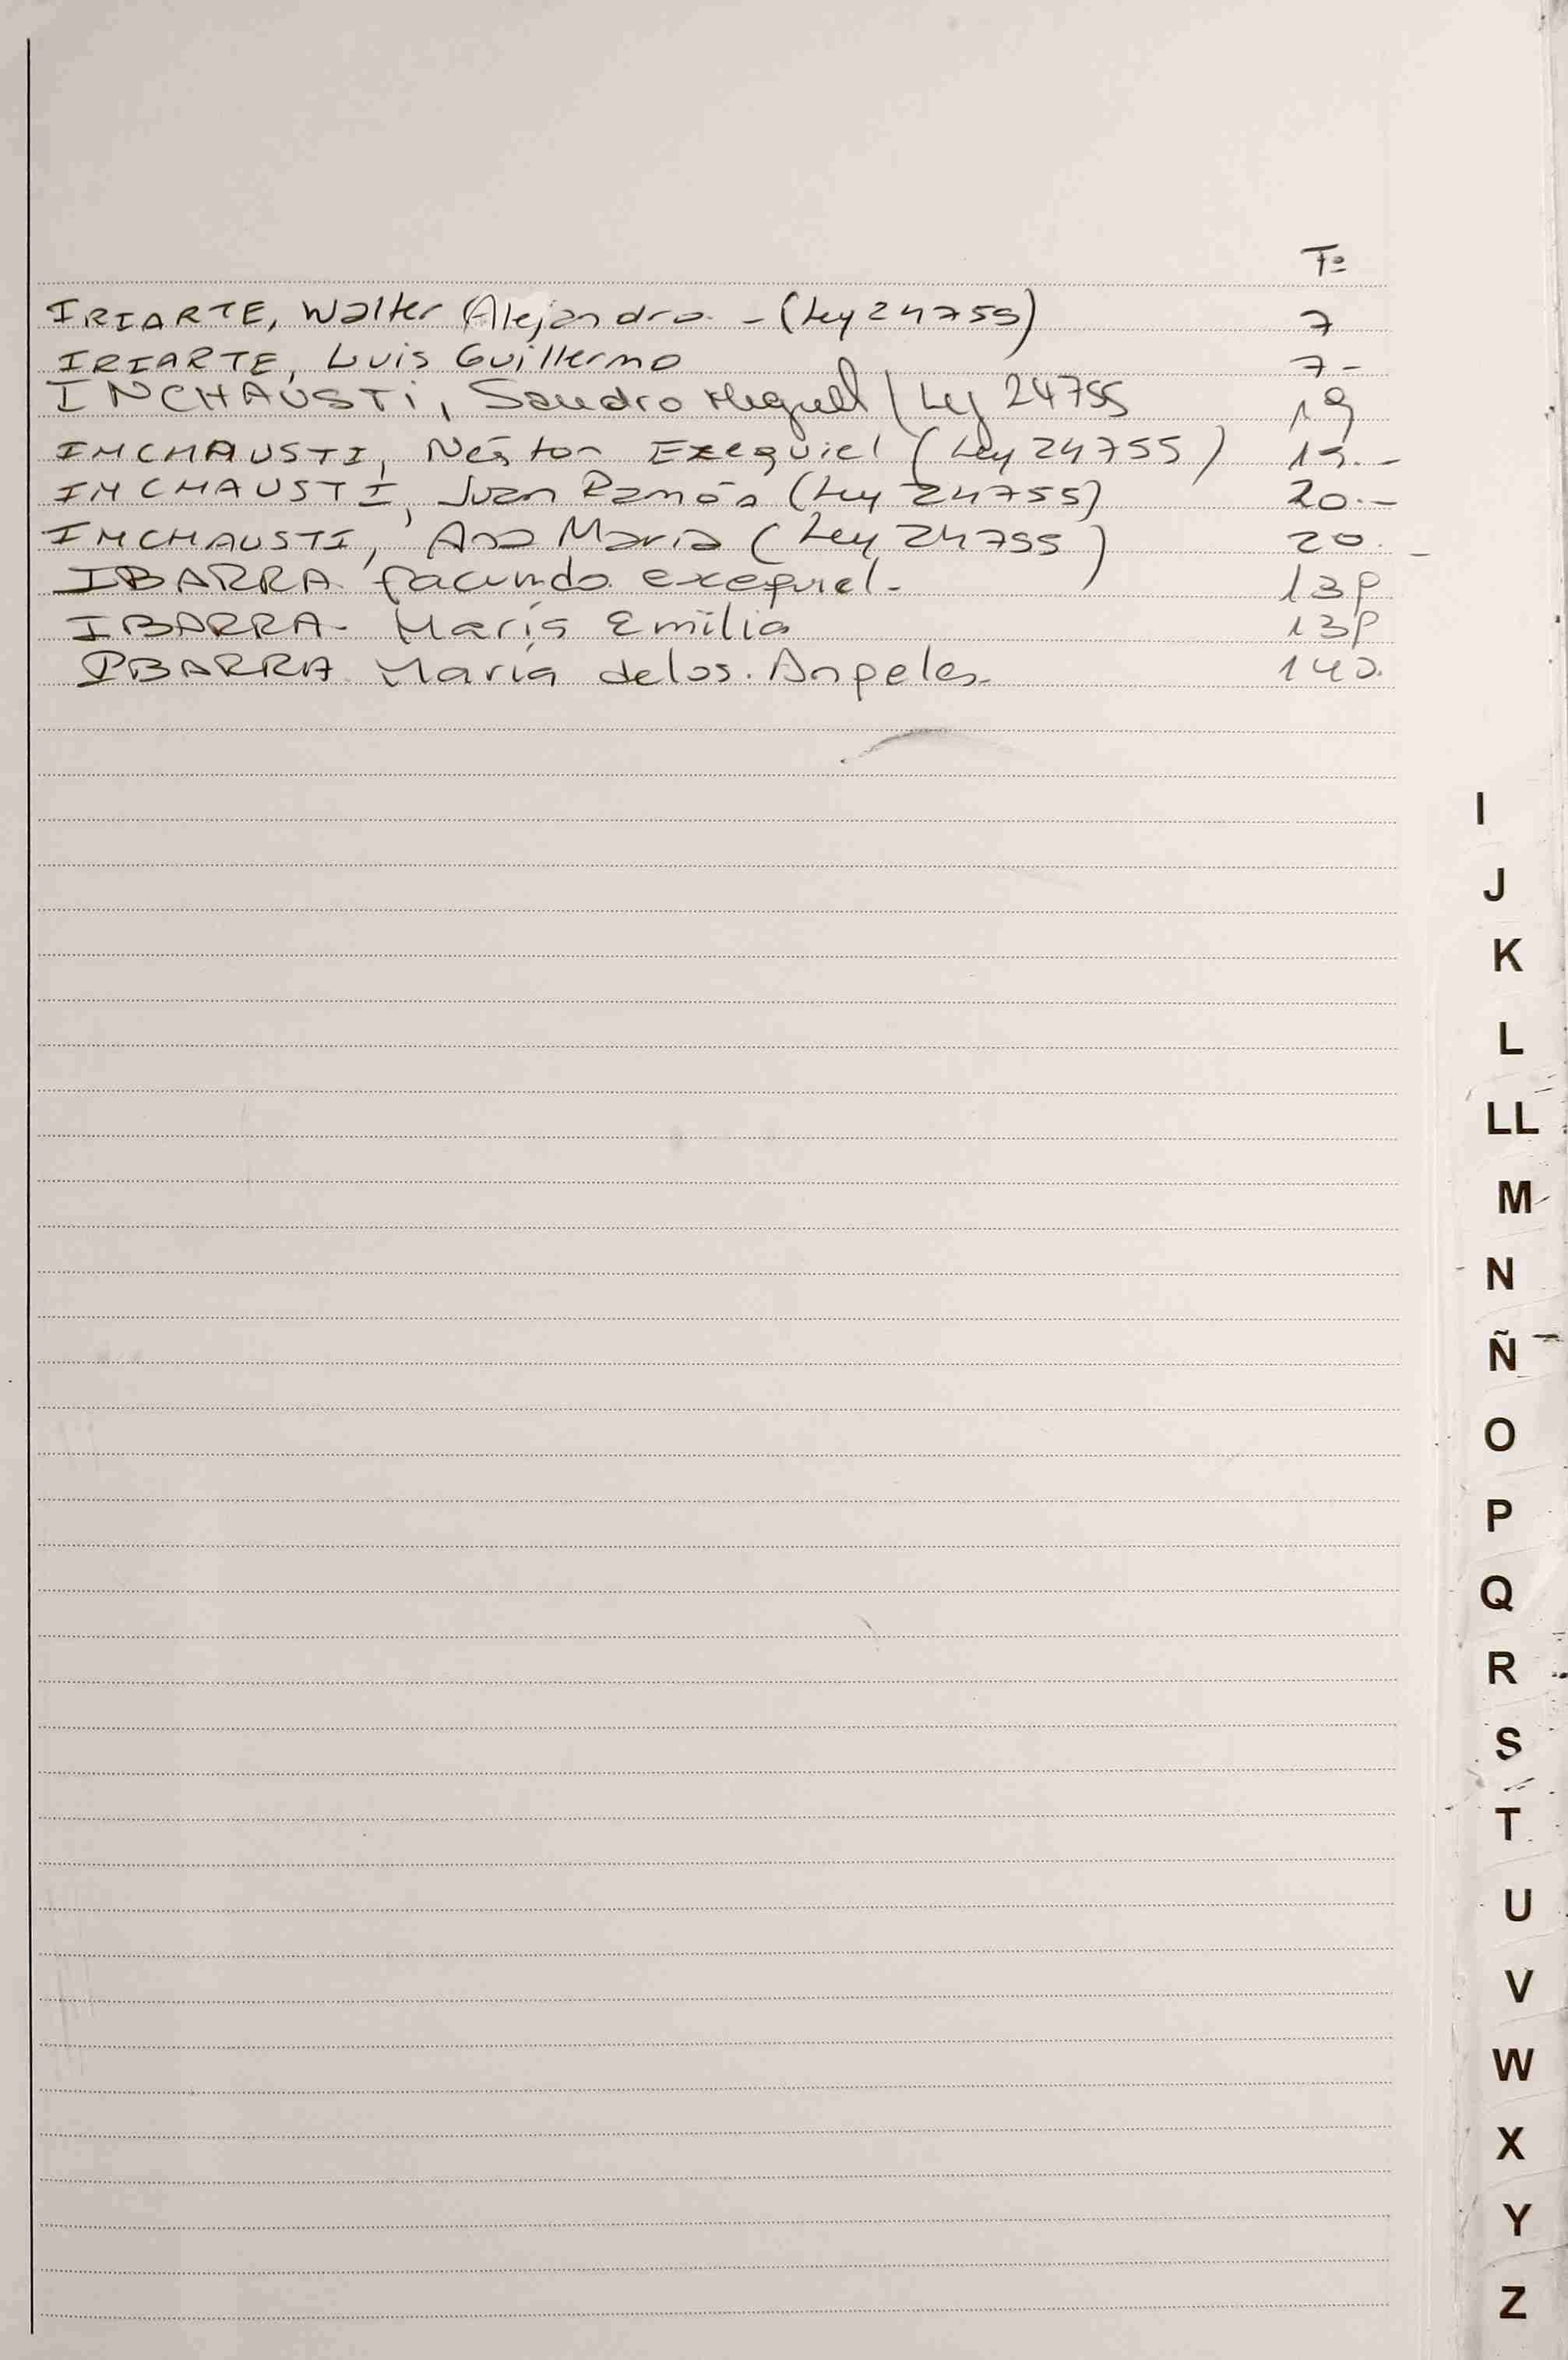 Fº
IRIARTE, Walter Alejandro - (Ley 24755) 7
IRIARTE, Luis Guillermo 7-
INCHAUSTi, Sandro Miguel / Ley 24755 19
INCHAUSTI, Néstor Exequiel (Ley 24755) 19.-
INCHAUSTI, Juan Ramón (Ley 24755) 20.-
INCHAUSTI, Ana María (Ley 24755) 20.-
IBARRA facundo exequiel.
IBARRA- María Emilia
IBARRA María delos. Angeles.
I
J
K
L
LL
M
N
Ñ
O
P
Q
R
S
T
U
V
W
X
Y
Z